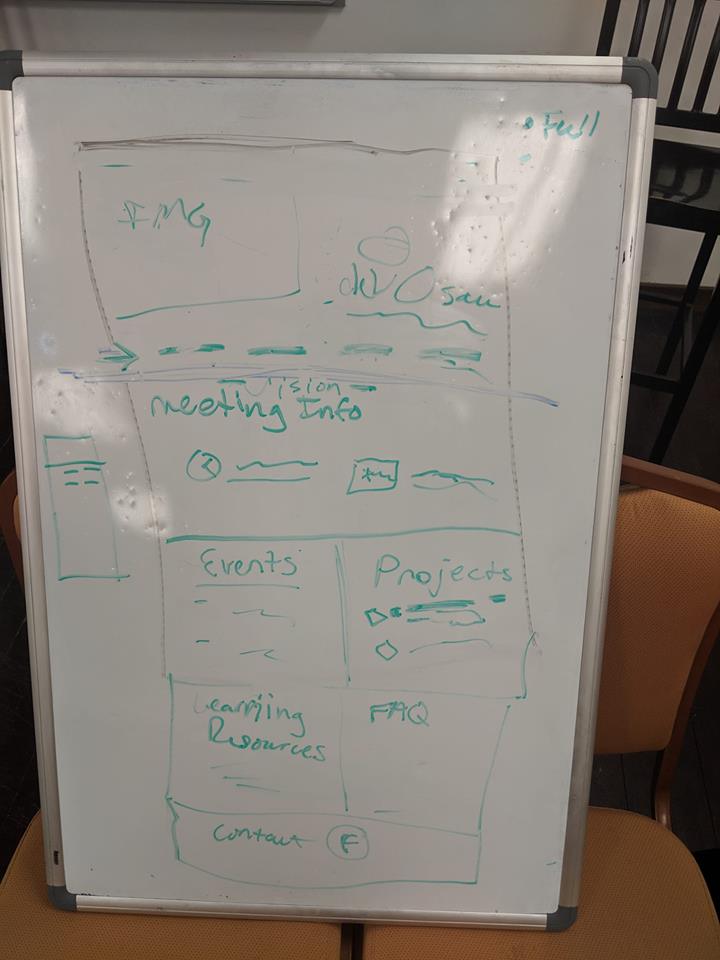 Full
IMG
Vision
Meeting Info
Events
Projects
Learning
Resources
FAQ
Contact F